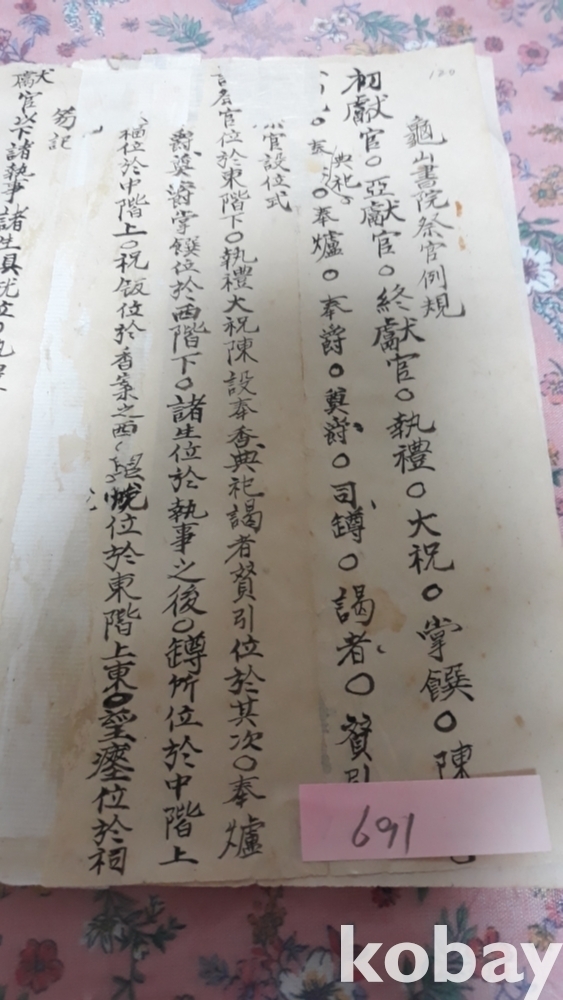 120
龜山書院祭官例規
初獻官○亞獻官○終獻官○執禮○大祝○掌饌○陳
典祀
○奉爐○奉爵○奠爵○司罇○謁者○贊引
官設位式
官位於東階下○執禮大祝陳設奉香典祀謁者贊引位於其次○奉爐
爵奠爵掌饌位於西階下○諸生位於執事之後○罇所位於中階上
位於中階上○祝板位於香案之西○位於東階上東○望瘞位於祠
笏記
獻官以下諸執事諸生具就位○
691
kobay